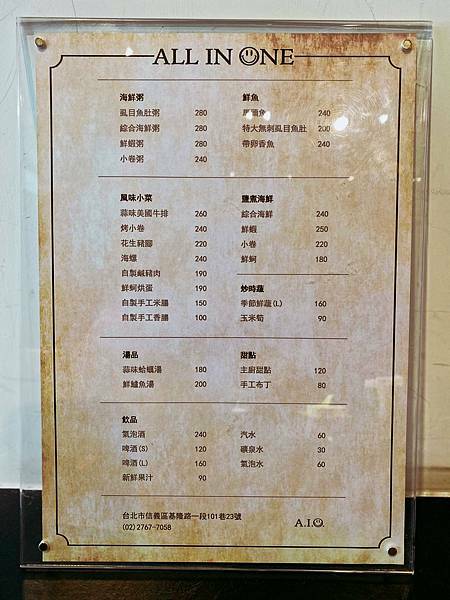 ALL IN ONE
海鮮粥
虱目魚肚粥 280
綜合海鮮粥 280
鮮蝦粥 280
小卷粥 240
鮮魚
240
特大無刺虱目魚肚 200
帶卵香魚 240
風味小菜
蒜味美國牛排 260
烤小卷 240
花生豬腳 220
海螺 240
自製鹹豬肉 190
鮮蚵烘蛋 190
自製手工米腸 150
自製手工香腸 100
鹽煮海鮮
綜合海鮮 240
鮮蝦 250
小卷 220
鮮蚵 180
炒時蔬
季節鮮蔬(L) 160
玉米筍 90
湯品
蒜味蛤蠣湯 180
鮮鱸魚湯 200
甜點
主廚甜點 120
手工布丁 80
飲品
氣泡酒 240
啤酒(S) 120
啤酒(L) 160
新鮮果汁 90
汽水 60
礦泉水 30
氣泡水 60
台北市信義區基隆路一段101巷23號
(02)2767-7058
A.I.O.